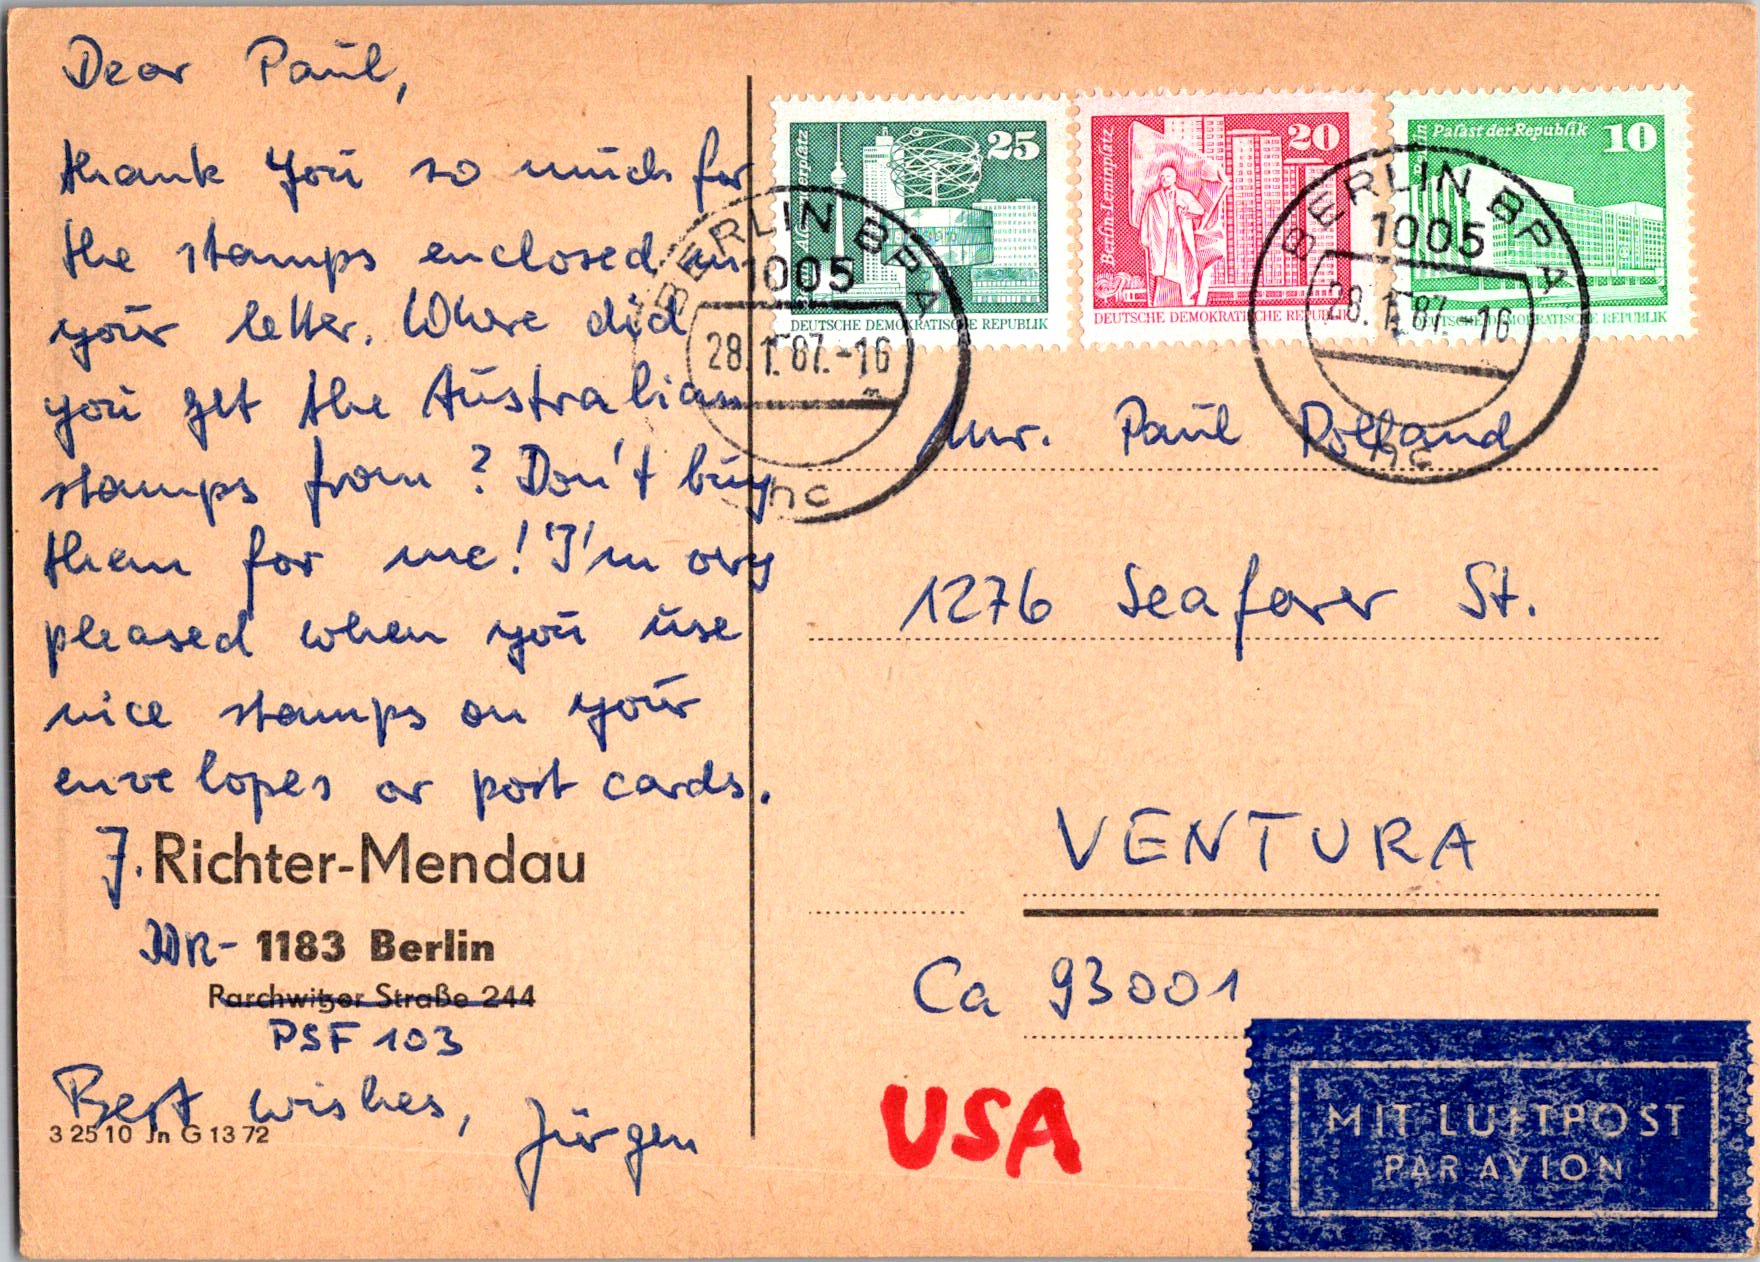 Dear Paul,
thank you so much for
the stamps enclosed in
your letter. Where did
you get the Australian
stamps from? Don't buy
them for me! I'm very
pleased when you use
nice stamps on your
envelopes or post cards.
J. Richter-Mendau
DDR- 1183 Berlin
Parchwitzer Straße 244
PSF 103
Best wishes, Jürgen
3 25 10 Jn G 13 72
25
DEUTSCHE DEMOKRATISCHE REPUBLIK
20
Berlin-Leninplatz
DEUTSCHE DEMOKRATISCHE REPUBLIK
Palast der Republik 10
DEUTSCHE DEMOKRATISCHE REPUBLIK
BERLIN BPA
1005
28.1.87.-16
nc
BERLIN BPA
1005
28.1.87.-16
nc
Mr. Paul
1276 Seafarer St.
VENTURA
Ca 93001
USA
MIT LUFTPOST
PAR AVION